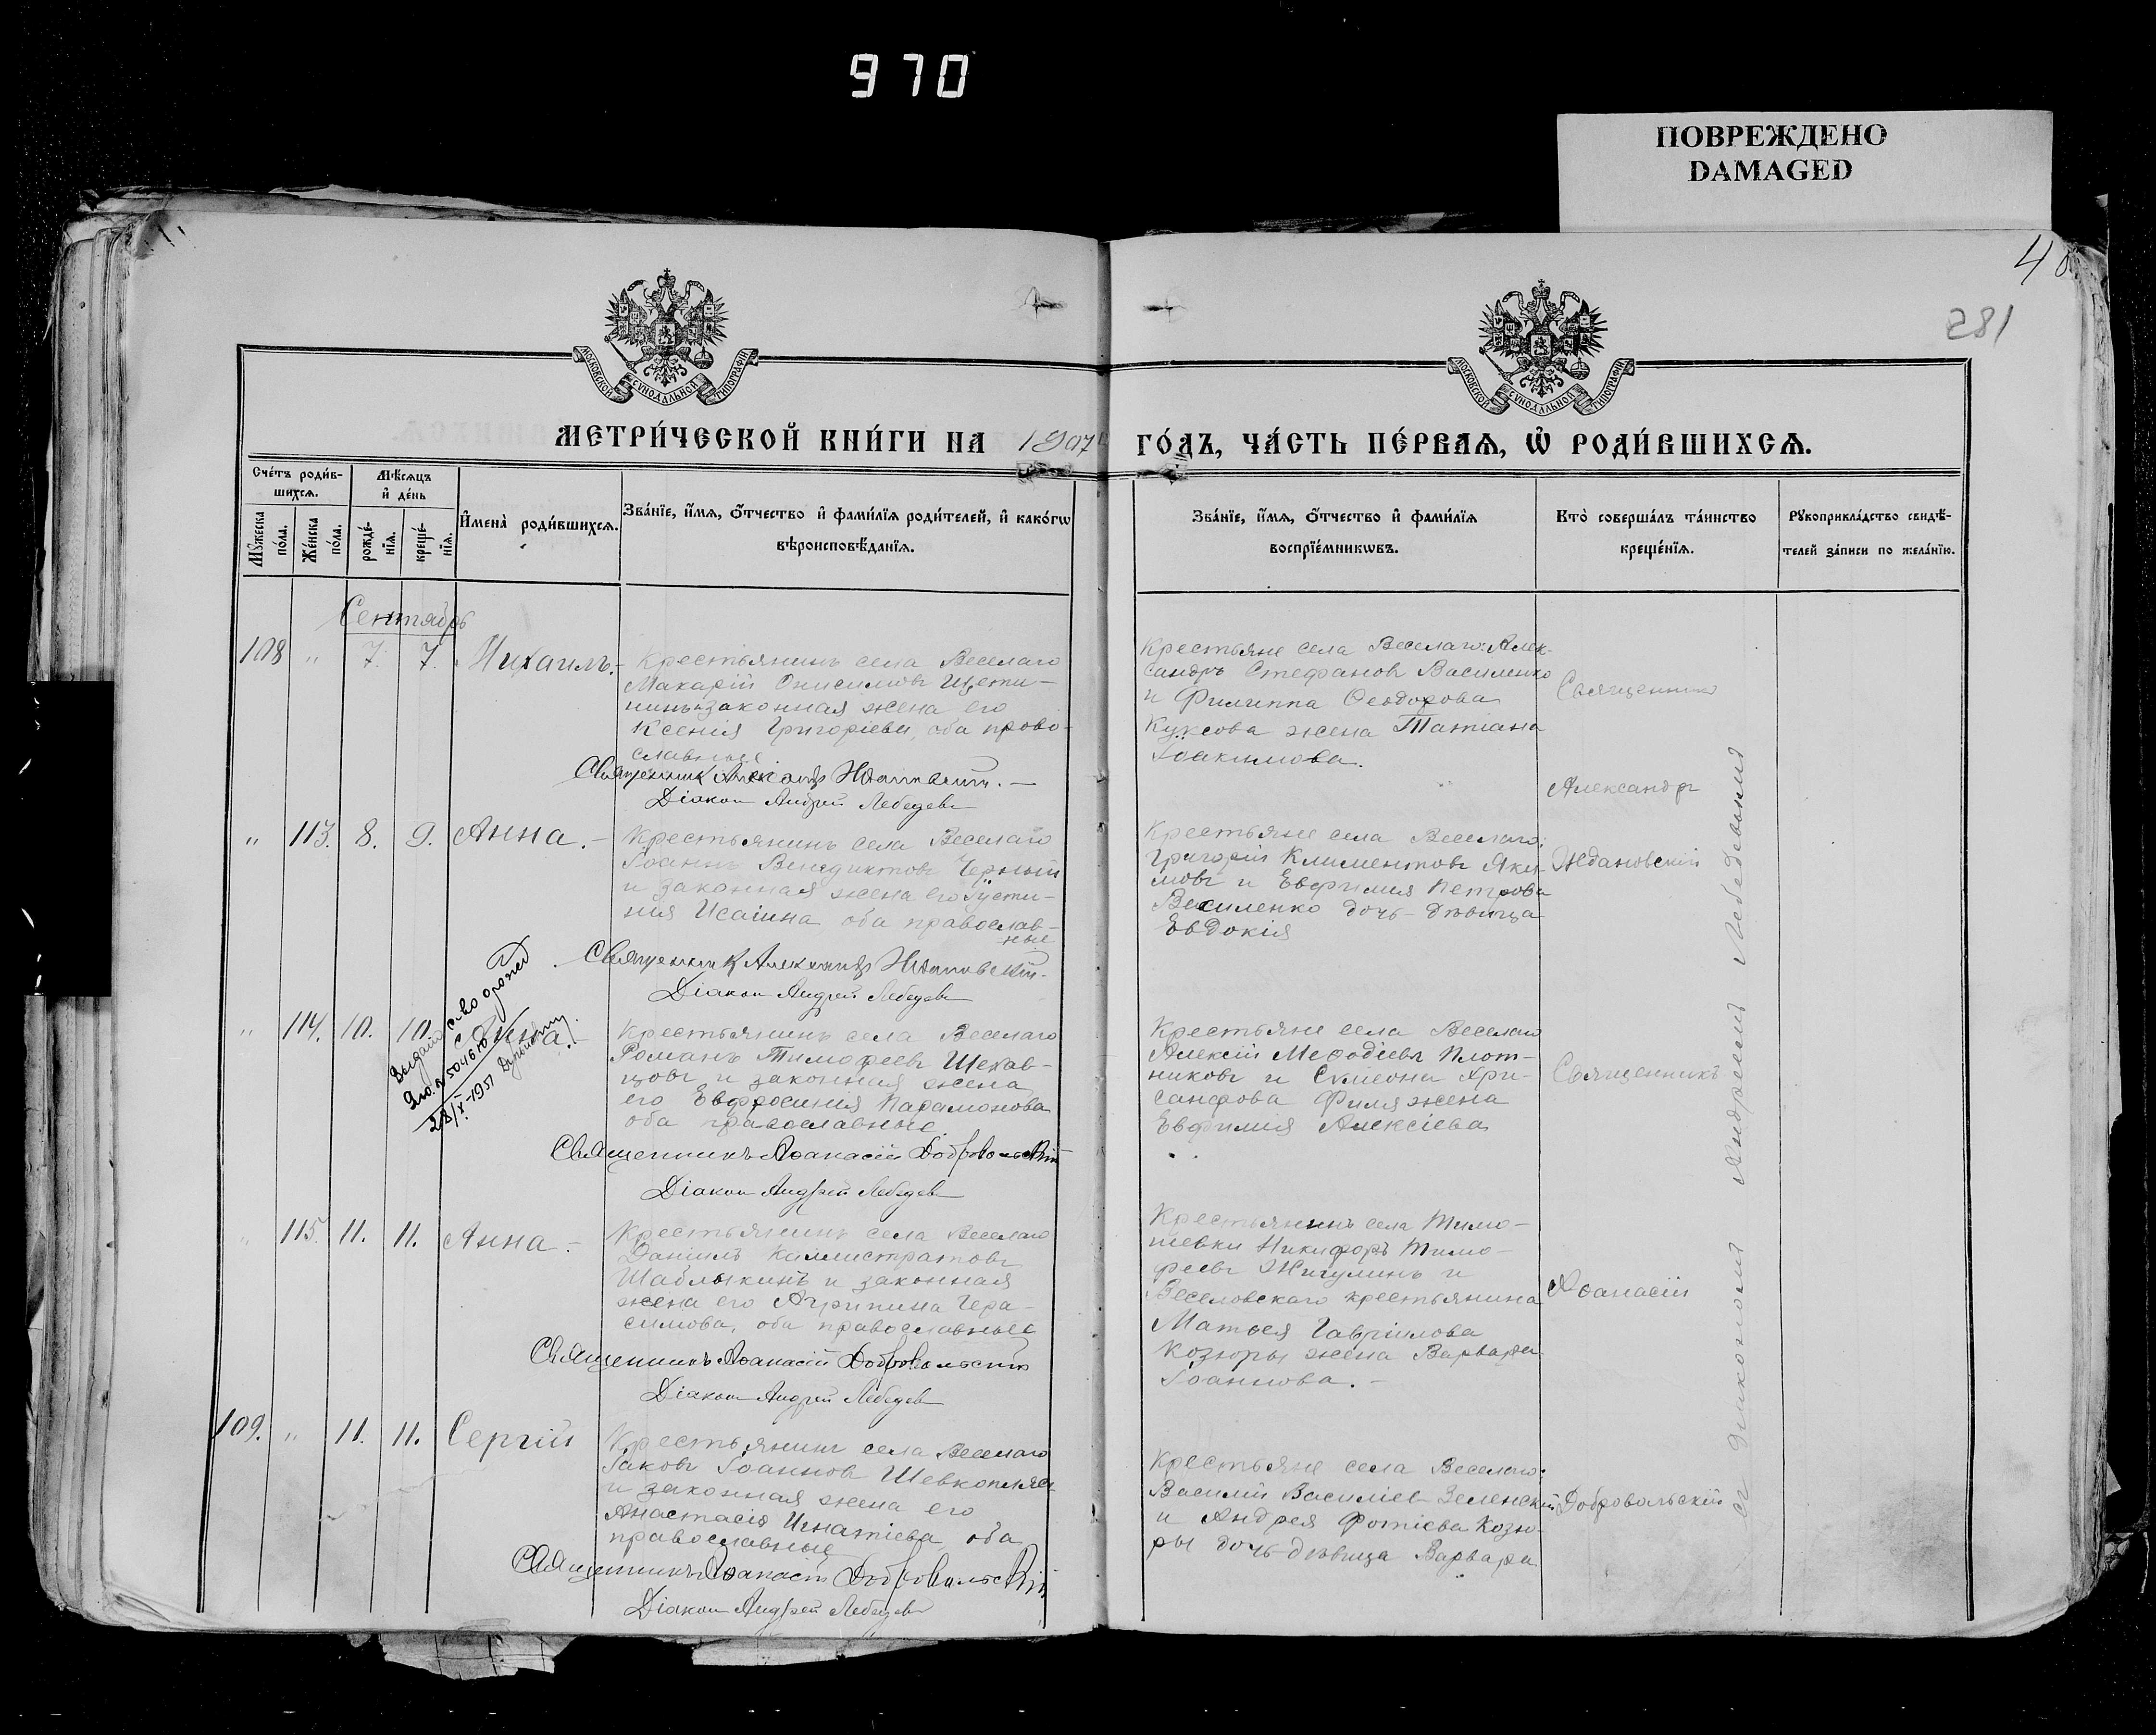 970
ПОВРЕЖДЕНО
DAMAGED
40
281
МОСКОВСКОЙ СУНОДАЛЬНОЙ ТИПОГРАФІИ
МОСКОВСКОЙ СУНОДАЛЬНОЙ ТИПОГРАФІИ
МЕТРИ́ЧЕСКОЙ КНИ́ГИ НА 1907
ГО́ДЪ, ЧА́СТЬ ПЕ́РВАѦ, Ѽ РОДИ́ВШИХСѦ.
Сче́тъ роди́в-
шихсѧ.
Мѣ́сѧцъ
и҆ де́нь
Мꙋ́жеска
по́ла.
Же́нска
по́ла.
рожде́-
нїѧ.
креще́-
нїѧ.
И҆мена̀ роди́вшихсѧ.
Зва́нїе, и҆́мѧ, ѻ҆́тчество и҆ фами́лїѧ роди́телей, и҆ како́гѡ
вѣроисповѣ́данїѧ.
Зва́нїе, и҆́мѧ, ѻ҆́тчество и҆ фами́лїѧ
воспрїе́мникѡвъ.
Кто̀ соверша́лъ та́инство
креще́нїѧ.
Рꙋкоприкла́дство свидѣ́-
телей за́писи по жела́нїю.
Сентябрь
108 " 7. 7. Михаилъ.-
Крестьянинъ села Веселаго
Макарій Онисимовъ Щети-
нинъ законная жена его
Ксенія Григоріева, оба право-
славные
Священникъ Александръ Ждановскій.-
Діаконъ Андрей Лебедевъ
Крестьяне села Веселаго: Алек-
сандръ Стефановъ Василенко
и Филиппа Ѳеодорова
Куксова жена Татіана
Іоакимова.
Священникъ
Александръ
Ждановскій
" 113. 8. 9. Анна.-
Крестьянинъ села Веселаго
Іоаннъ Венедиктовъ Черный
и законная жена его Іусти-
нія Исаіина оба православ-
ные
Священникъ Александръ Ждановскій.
Діаконъ Андрей Лебедевъ
Крестьяне села Веселаго:
Григорій Климентовъ Яки-
мовъ и Евфимія Петрова
Василенко дочь-дѣвица
Евдокія
" 114. 10. 10. Анна.-
28/X-1951
Крестьянинъ села Веселаго
Романъ Тимофеевъ Шехав-
цовъ и законная жена
его Евфросинія Парамонова
оба православные.
Священникъ Аѳанасій Добровольскій
Діаконъ Андрей Лебедевъ
Крестьяне села Веселаго
Алексій Меѳодіевъ Плот-
никовъ и Симеона Хри-
санфова Филя жена
Евфимія Алексіева
Священникъ
Аѳанасій
Добровольскій
" 115. 11. 11. Анна.-
Крестьянинъ села Веселаго
Даніилъ Каллистратовъ
Шаблыкинъ и законная
жена его Агрипина Гера-
симова, оба православные
Священникъ Аѳанасій Добровольскій
Діаконъ Андрей Лебедевъ
Крестьянинъ села Тимо-
шевки Никифоръ Тимо-
феевъ Жигулинъ и
Веселовскаго крестьянина
Матѳея Гавріилова
Козюры жена Варвара
Іоаннова.-
109. " 11. 11. Сергій
Крестьянинъ села Веселаго
Іаковъ Іоанновъ Шевкоплясъ
и законная жена его
Анастасія Игнатіева, оба
православные
Священникъ Аѳанасій Добровольскій
Діаконъ Андрей Лебедевъ
Крестьяне села Веселаго:
Василій Василіевъ Зеленскій
и Андрея Фотіева Козю-
ры дочь-дѣвица Варвара
съ діакономъ Андреемъ Лебедевымъ